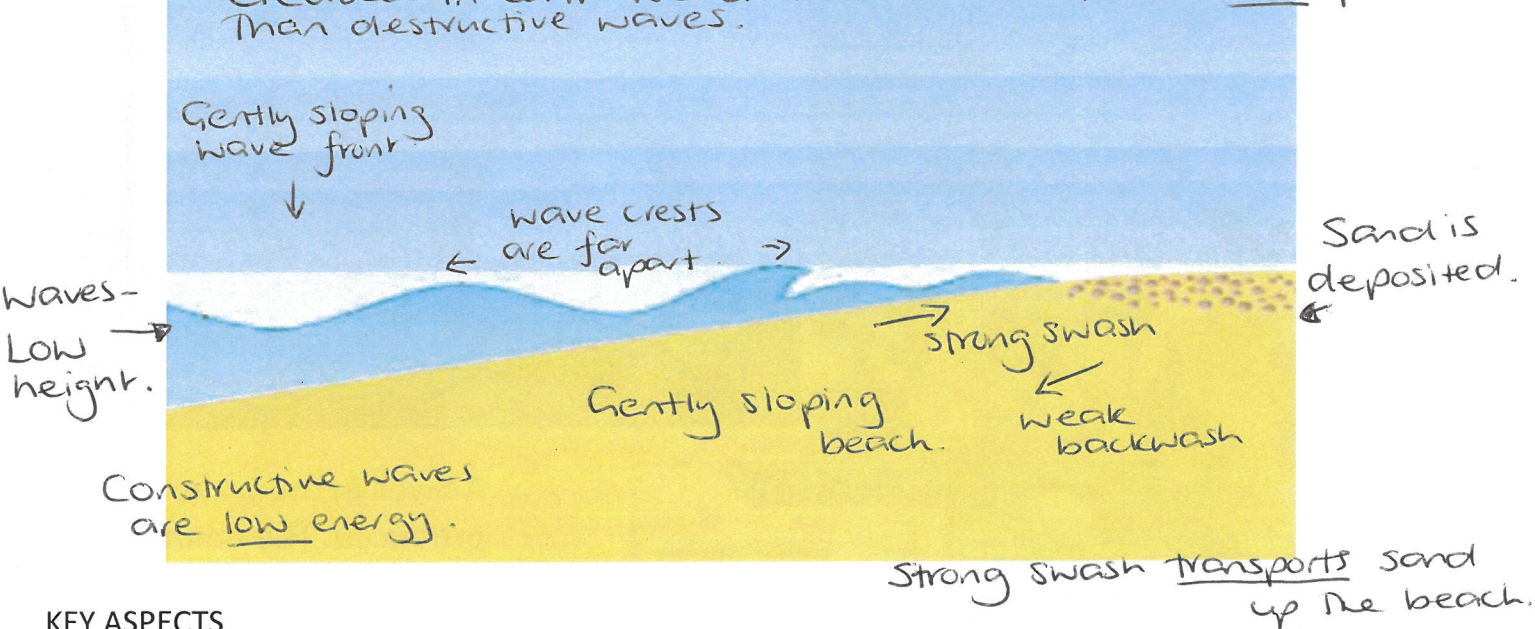 Than destructive waves.
Gently sloping
wave front
wave crests
are far
apart
Sand is
deposited.
Waves-
Low
height.
strong swash
weak
backwash
Gently sloping
beach.
Constructive waves
are low energy.
Strong swash transports sand
up the beach.
KEY ASPECTS